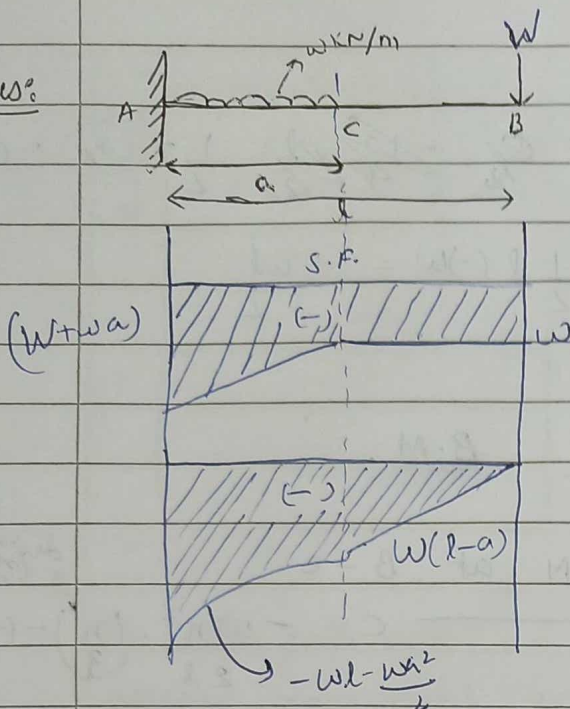 W
wkN/m
A
C
B
a
l
S.F.
(W+wa)
(-)
W
(-)
W(l-a)
-Wl-wa²/2